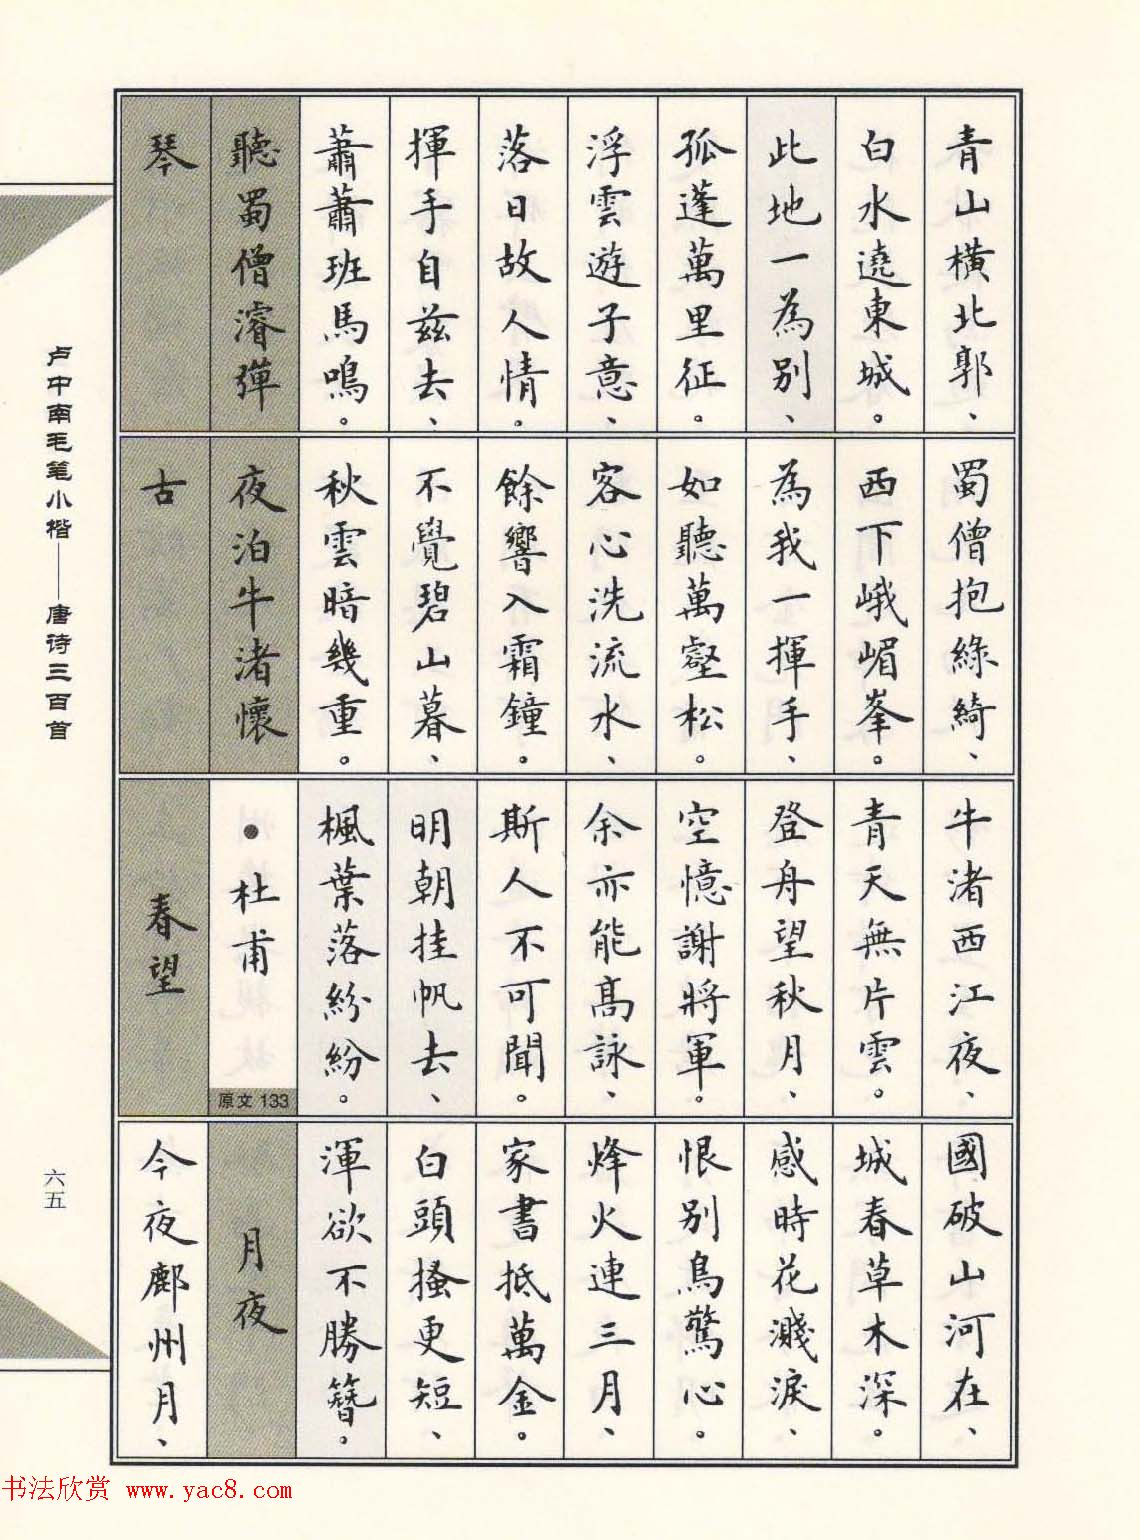 青山橫北郭、
白水遶東城。
此地一為別、
孤蓬萬里征。
浮雲遊子意、
落日故人情。
揮手自兹去、
蕭蕭班馬鳴。
聽蜀僧濬彈
琴
蜀僧抱綠綺、
西下峨嵋峯。
為我一揮手、
如聽萬壑松。
客心洗流水、
餘響入霜鐘。
不覺碧山暮、
秋雲暗幾重。
夜泊牛渚懷
古
牛渚西江夜、
青天無片雲。
登舟望秋月、
空憶謝將軍。
余亦能高詠、
斯人不可聞。
明朝挂帆去、
楓葉落紛紛。
•杜甫
原文133
春望
國破山河在、
城春草木深。
感時花濺淚、
恨別鳥驚心。
烽火連三月、
家書抵萬金。
白頭搔更短、
渾欲不勝簪。
月夜
今夜鄜州月、
卢中南毛笔小楷——唐诗三百首
六五
书法欣赏 www.yac8.com